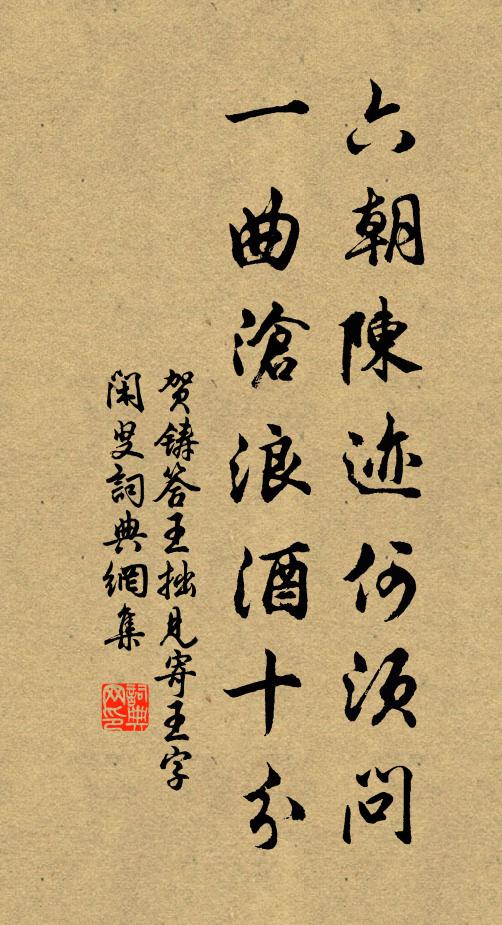 六朝陳迹何須問
一曲滄浪酒十分
賀鑄答王拙見寄王字
閑叟詞典網集
詞典网印